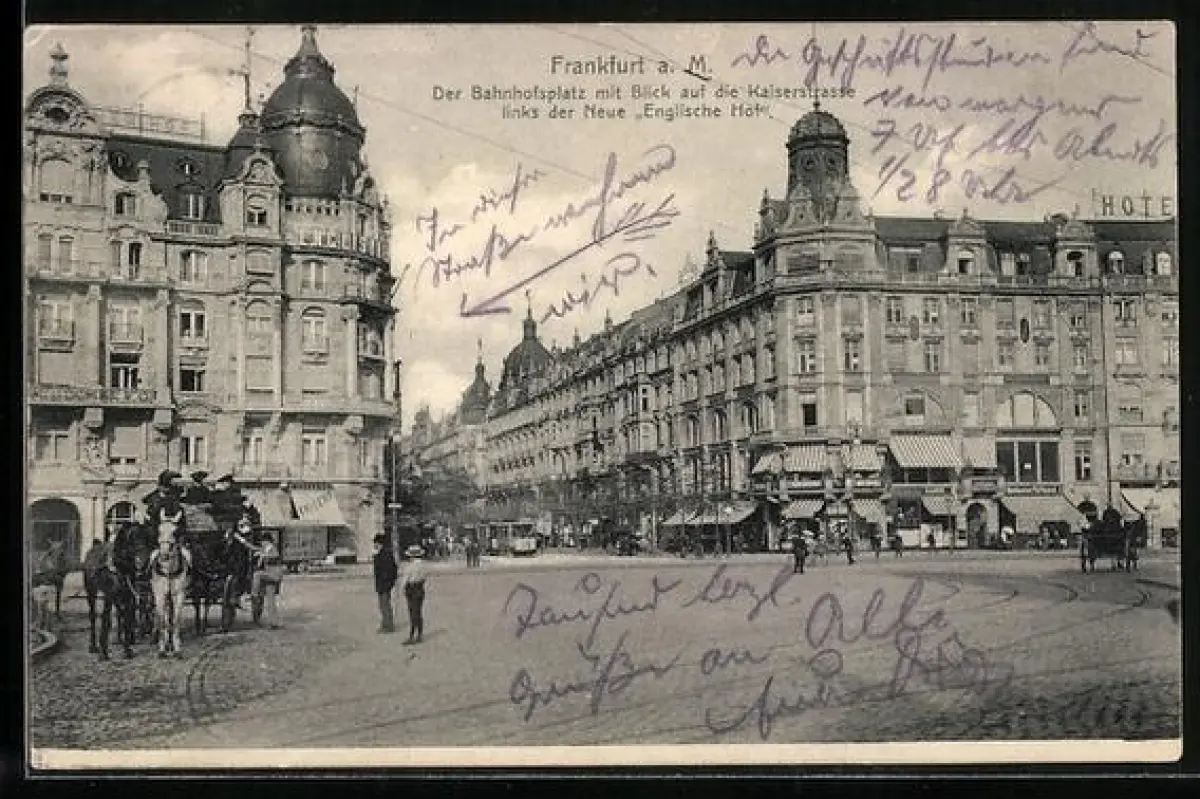 Frankfurt a. M.
Der Bahnhofsplatz mit Blick auf die Kaiserstrasse
links der Neue „Englische Hof“.
Die Geschäftsstunden sind
von morgens
7 Uhr bis Abends
1/2 8 Uhr
In dieser
Straße wohnen
wir.
HOTE
Tausend herzl.
Grüße an Alle